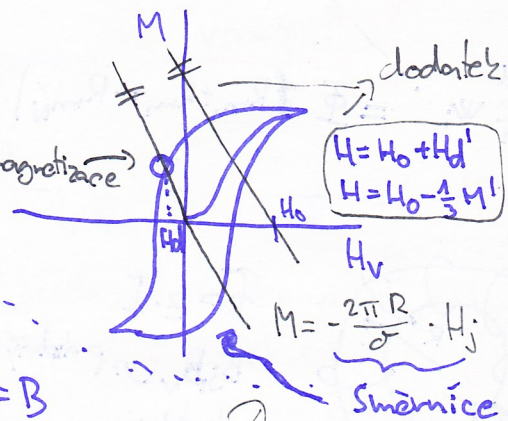 M
dodatek
agnetizace
H = H₀ + Hd'
H = H₀ - 1/3 M'
H₀
Hd
Hv
M = - 2πR/σ · Hj
= B
Směrnice